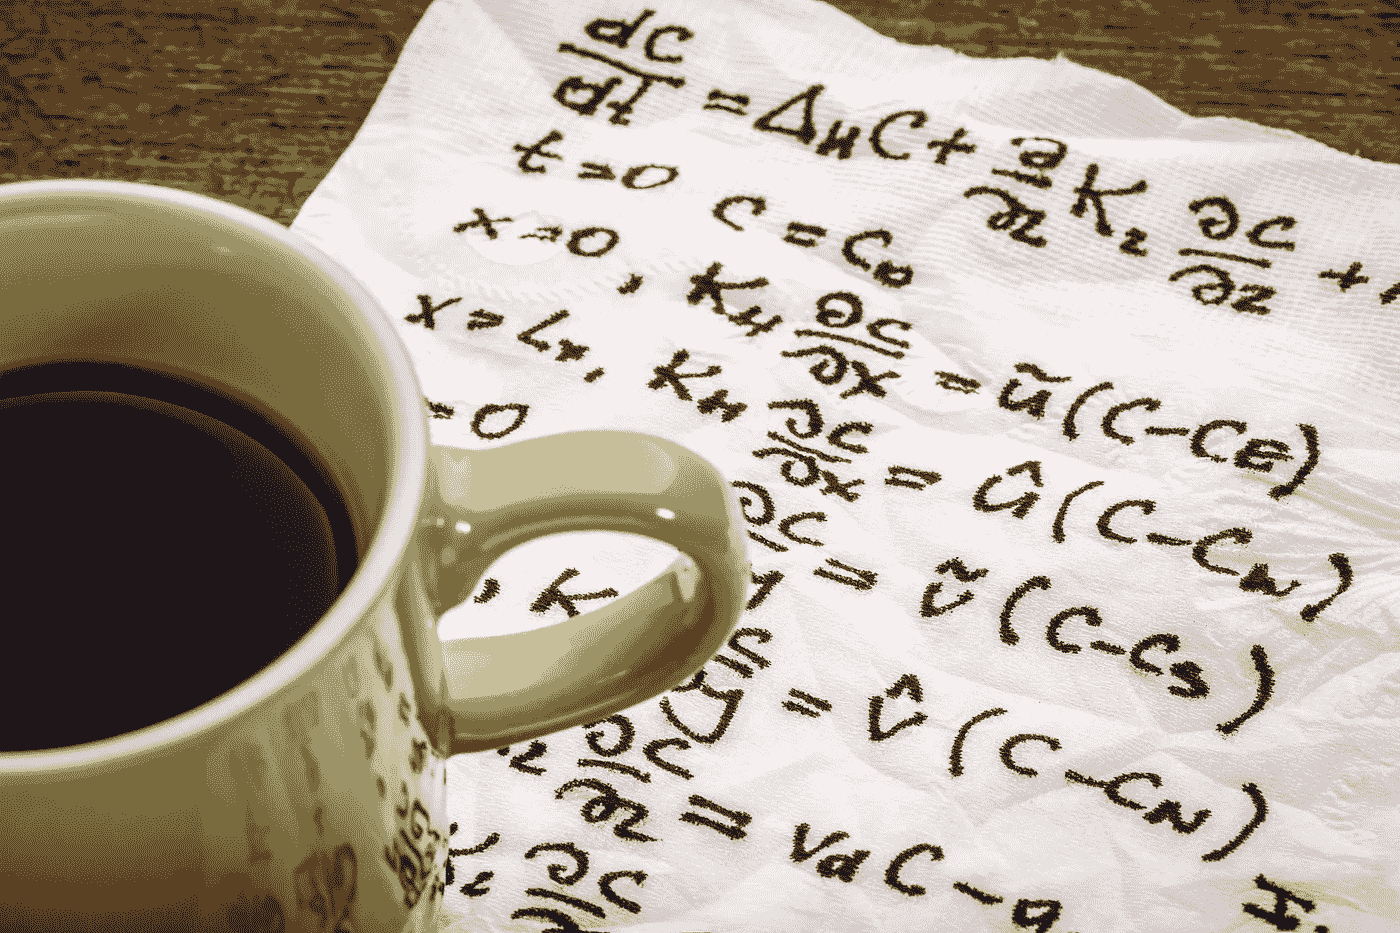 dC/dt = Δ_H C + ∂/∂z K_z ∂C/∂z +
t = 0 C = C_0
x = 0, K_H ∂C/∂x = ũ(C - C_E)
x = L_x, K_H ∂C/∂x = û(C - C_W)
= 0 ∂C = ṽ(C - C_S)
, K = v̂(C - C_N)
z ∂C/∂z = V_d C - q
K_z ∂C/∂